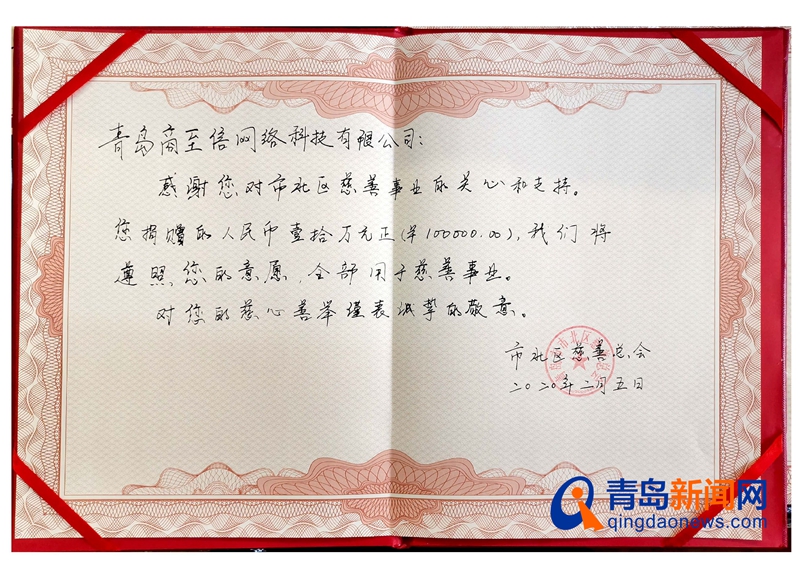 青岛商至信网络科技有限公司：
感谢您对市北区慈善事业的关心和支持。
您捐赠的人民币壹拾万元正(¥100000.00)，我们将
遵照您的意愿，全部用于慈善事业。
对您的慈心善举谨表诚挚的敬意。
市北区慈善总会
二〇二〇年二月五日
青岛新闻网
qingdaonews.com